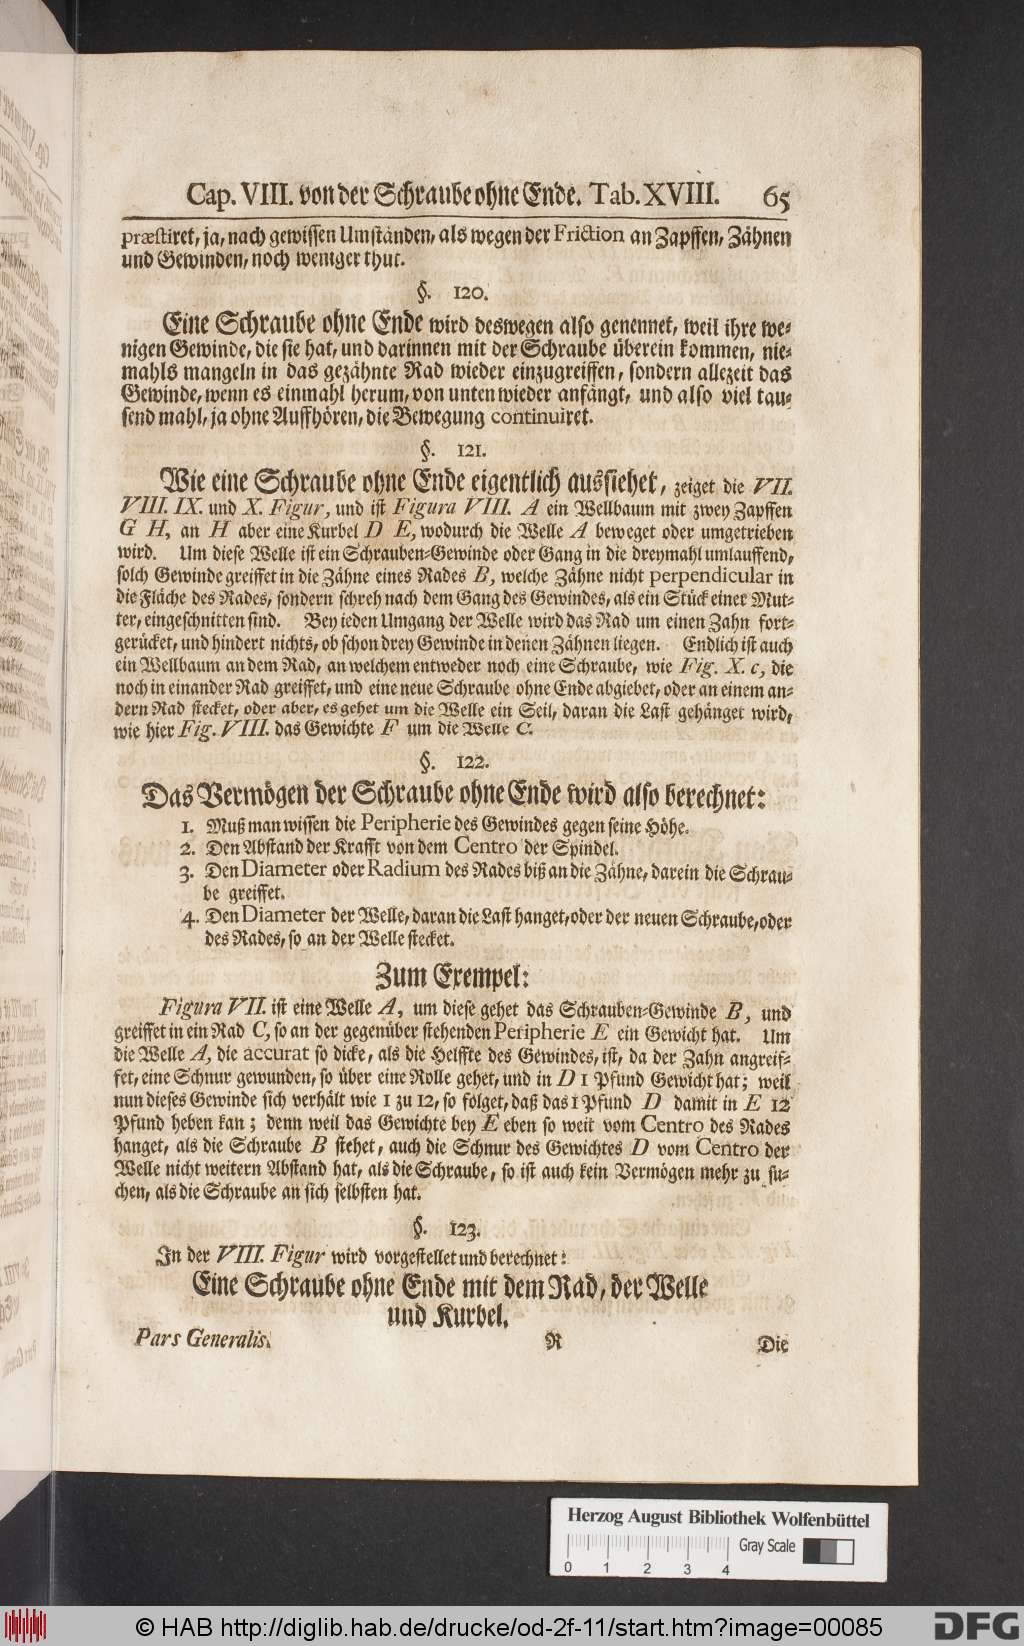 Cap. VIII. von der Schraube ohne Ende. Tab. XVIII. 65
præstiret, ja, nach gewissen Umständen, als wegen der Friction an Zapffen, Zähnen
und Gewinden, noch weniger thut.
§. 120.
Eine Schraube ohne Ende wird deswegen also genennet, weil ihre we-
nigen Gewinde, die sie hat, und darinnen mit der Schraube überein kommen, nie-
mahls mangeln in das gezähnte Rad wieder einzugreiffen, sondern allezeit das
Gewinde, wenn es einmahl herum, von unten wieder anfängt, und also viel tau-
send mahl, ja ohne Auffhören, die Bewegung continuiret.
§. 121.
Wie eine Schraube ohne Ende eigentlich aussiehet, zeiget die VII.
VIII. IX. und X. Figur, und ist Figura VIII. A ein Wellbaum mit zwey Zapffen
G H, an H aber eine Kurbel D E, wodurch die Welle A beweget oder umgetrieben
wird. Um diese Welle ist ein Schrauben-Gewinde oder Gang in die dreymahl umlauffend,
solch Gewinde greiffet in die Zähne eines Rades B, welche Zähne nicht perpendicular in
die Fläche des Rades, sondern schreh nach dem Gang des Gewindes, als ein Stück einer Mut-
ter, eingeschnitten sind. Bey ieden Umgang der Welle wird das Rad um einen Zahn fort-
gerücket, und hindert nichts, ob schon drey Gewinde in denen Zähnen liegen. Endlich ist auch
ein Wellbaum an dem Rad, an welchem entweder noch eine Schraube, wie Fig. X. c, die
noch in einander Rad greiffet, und eine neue Schraube ohne Ende abgiebet, oder an einem an-
dern Rad stecket, oder aber, es gehet um die Welle ein Seil, daran die Last gehänget wird,
wie hier Fig. VIII. das Gewichte F um die Welle C.
§. 122.
Das Vermögen der Schraube ohne Ende wird also berechnet:
1. Muß man wissen die Peripherie des Gewindes gegen seine Höhe.
2. Den Abstand der Krafft von dem Centro der Spindel.
3. Den Diameter oder Radium des Rades biß an die Zähne, darein die Schrau-
be greiffet.
4. Den Diameter der Welle, daran die Last hanget, oder der neuen Schraube, oder
des Rades, so an der Welle stecket.
Zum Exempel:
Figura VII. ist eine Welle A, um diese gehet das Schrauben-Gewinde B, und
greiffet in ein Rad C, so an der gegenüber stehenden Peripherie E ein Gewicht hat. Um
die Welle A, die accurat so dicke, als die Helffte des Gewindes, ist, da der Zahn angreif-
fet, eine Schnur gewunden, so über eine Rolle gehet, und in D 1 Pfund Gewicht hat; weil
nun dieses Gewinde sich verhält wie 1 zu 12, so folget, daß das 1 Pfund D damit in E 12
Pfund heben kan; denn weil das Gewichte bey E eben so weit vom Centro des Rades
hanget, als die Schraube B stehet, auch die Schnur des Gewichtes D vom Centro der
Welle nicht weitern Abstand hat, als die Schraube, so ist auch kein Vermögen mehr zu su-
chen, als die Schraube an sich selbsten hat.
§. 123.
In der VIII. Figur wird vorgestellet und berechnet:
Eine Schraube ohne Ende mit dem Rad, der Welle
und Kurbel.
Pars Generalis. R Die
Herzog August Bibliothek Wolfenbüttel
Gray Scale
0 1 2 3 4
© HAB http://diglib.hab.de/drucke/od-2f-11/start.htm?image=00085
DFG